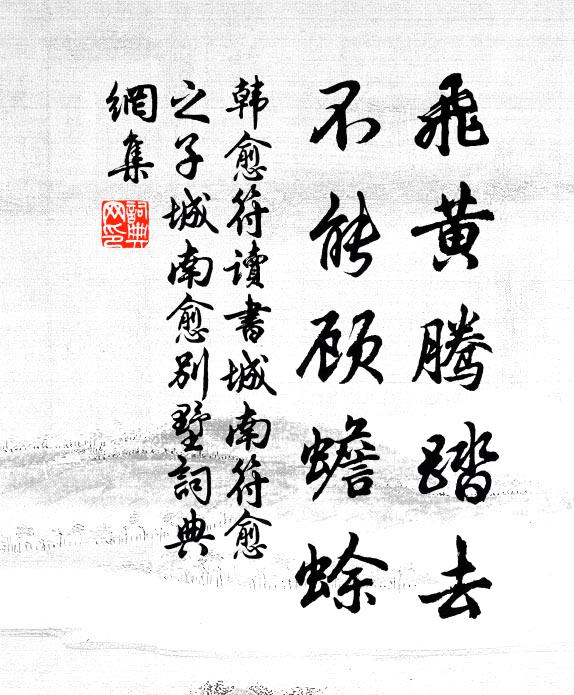 飛黄騰踏去
不能顾蟾蜍
韩愈符讀書城南符愈
之子城南愈别墅詞典
網集
詞典
网印